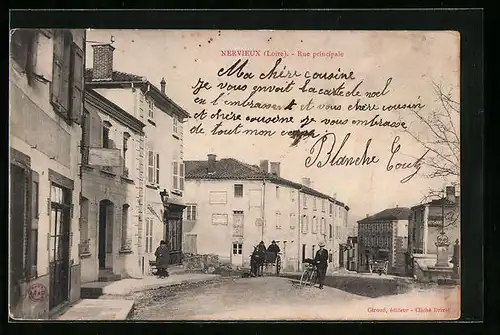 NERVIEUX (Loire). - Rue principale
Ma chère cousine
Je vous envoit la carte de noel
en l'embrassent et vous chère cousin
et chère cousine je vous embrasse
de tout mon
Blanche
Giraud, éditeur - Cliché